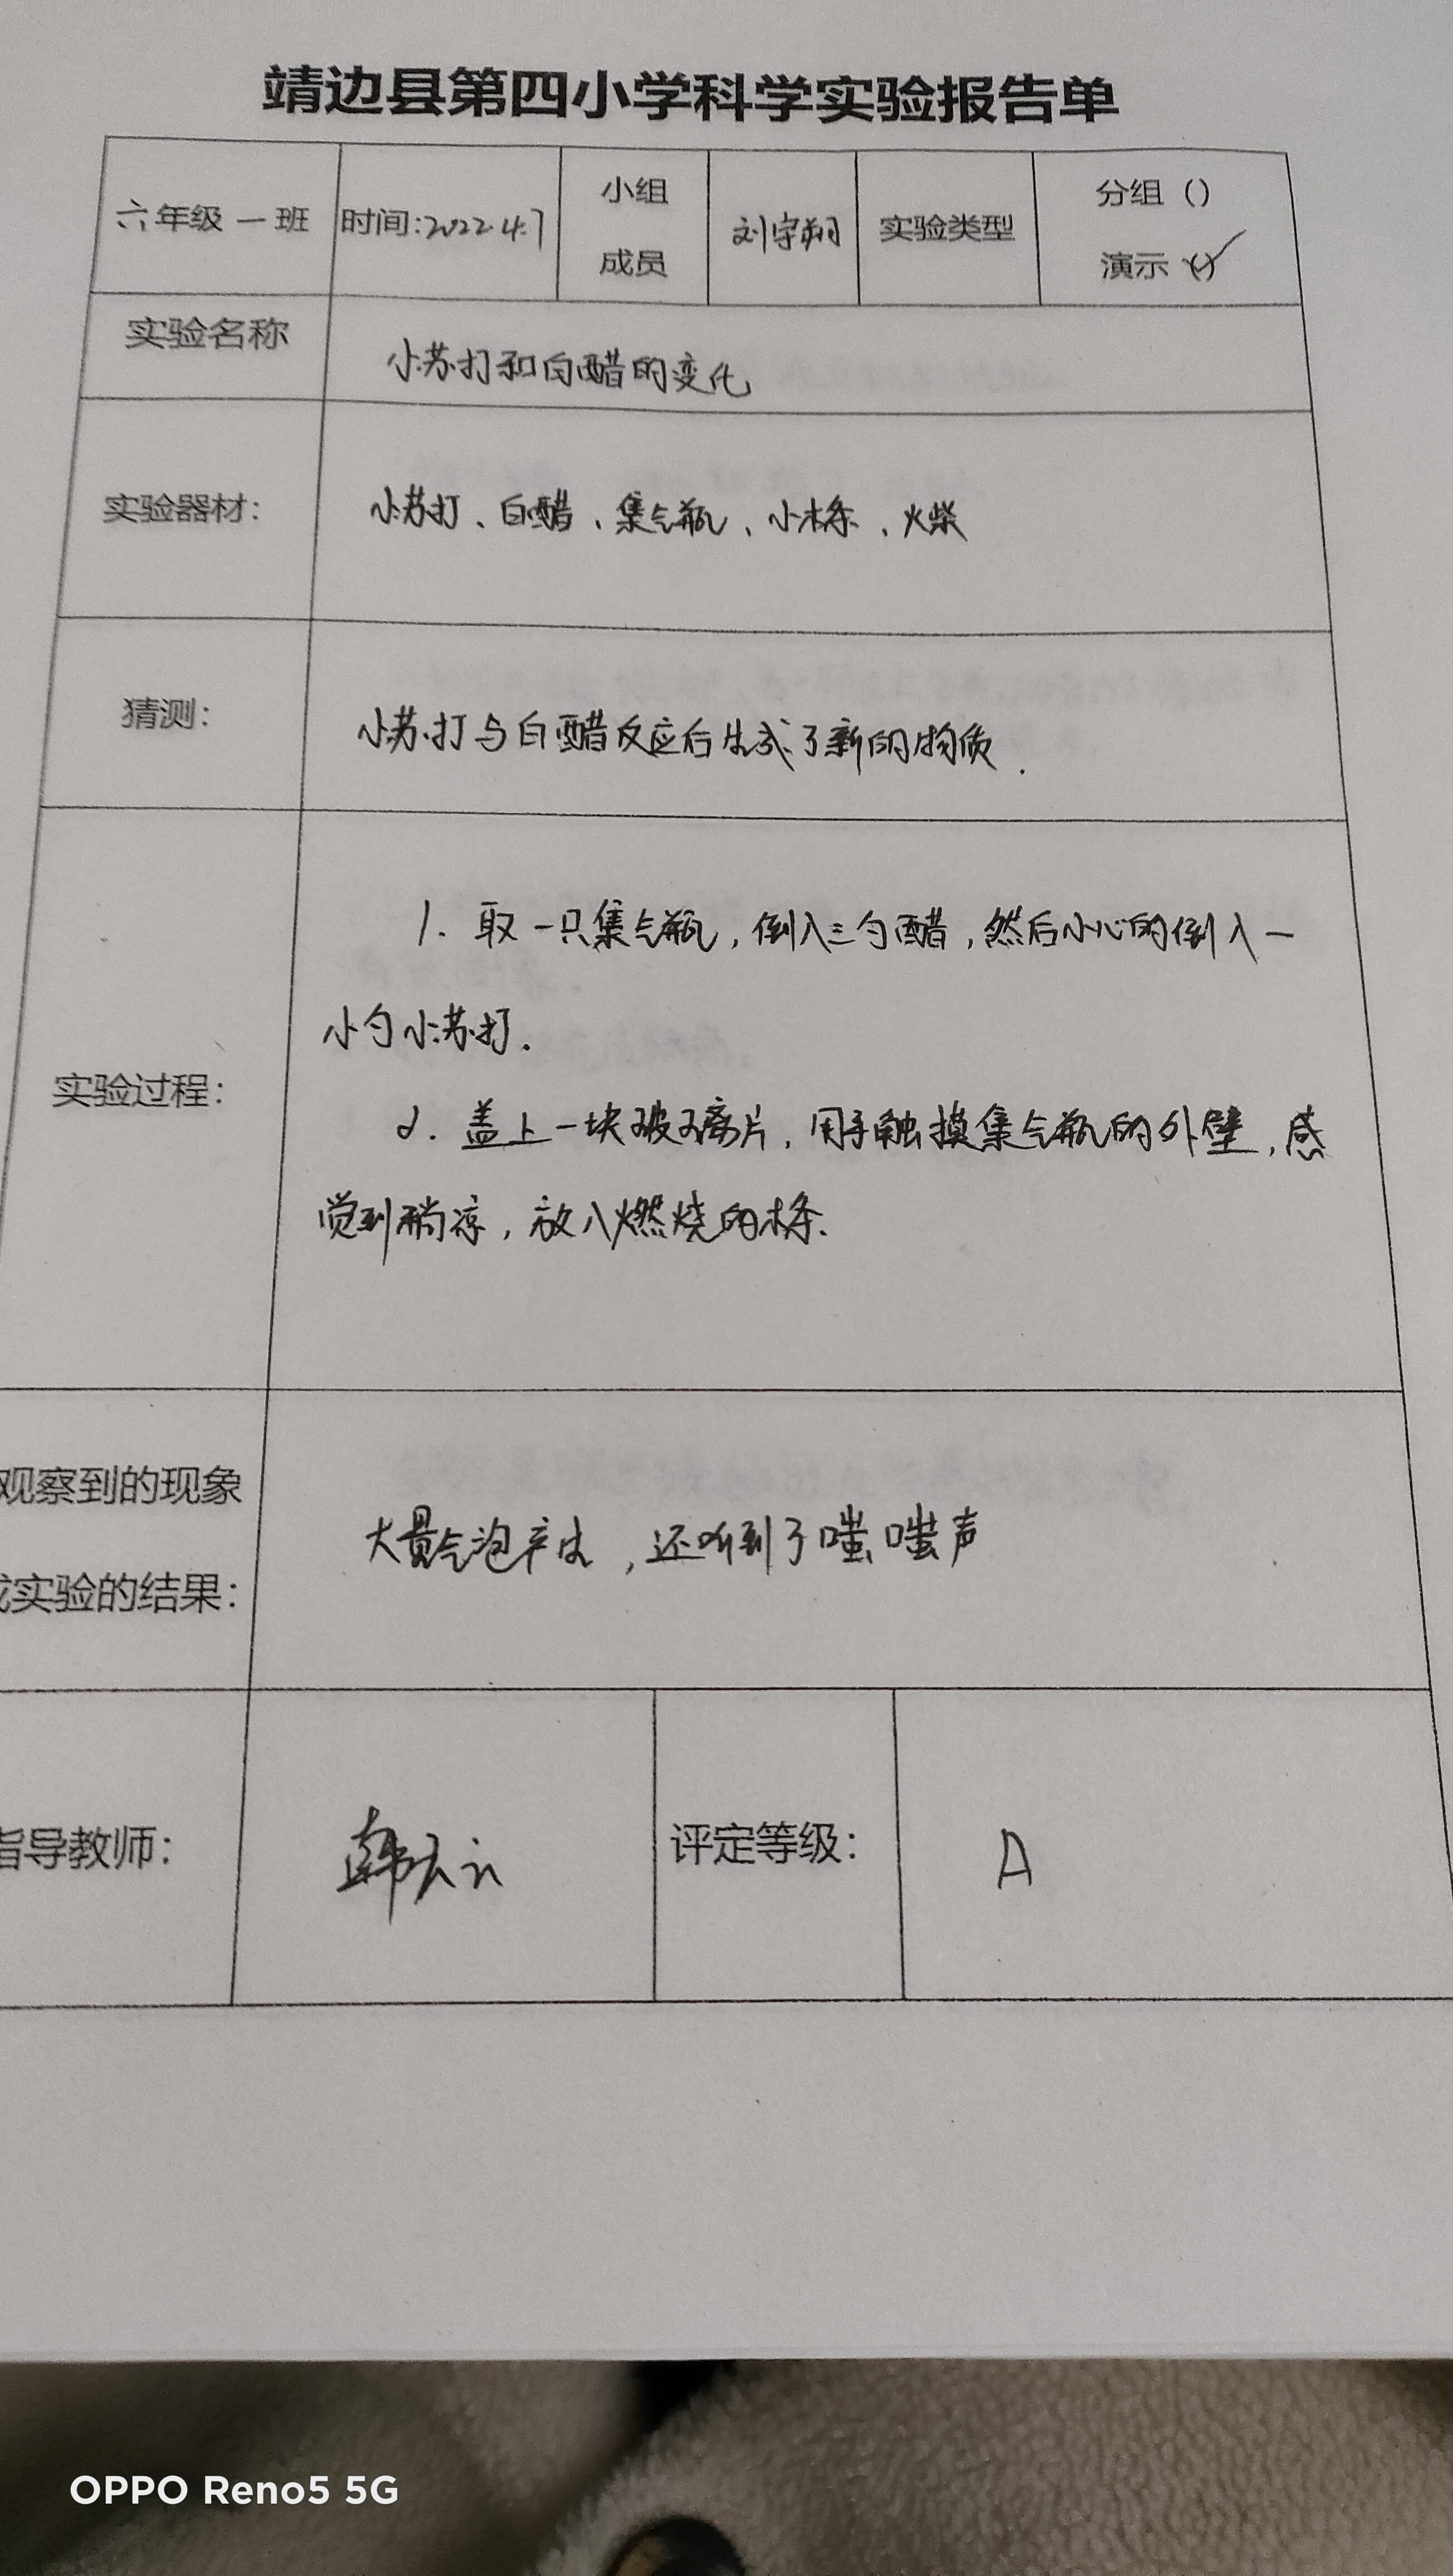 靖边县第四小学科学实验报告单
六年级 一 班 时间:2022.4.7 小组成员 刘宇翔 实验类型 分组（） 演示（✓）
实验名称 小苏打和白醋的变化
实验器材： 小苏打、白醋、集气瓶、小木条、火柴
猜测： 小苏打与白醋反应后生成了新的物质.
实验过程：
1. 取一只集气瓶，倒入三勺醋，然后小心的倒入一
小勺小苏打.
2. 盖上一块玻璃片，用手触摸集气瓶的外壁，感
觉到稍凉，放入燃烧的木条.
观察到的现象
或实验的结果：
大量气泡产生，还听到了嗤嗤声
指导教师： 评定等级： A
OPPO Reno5 5G